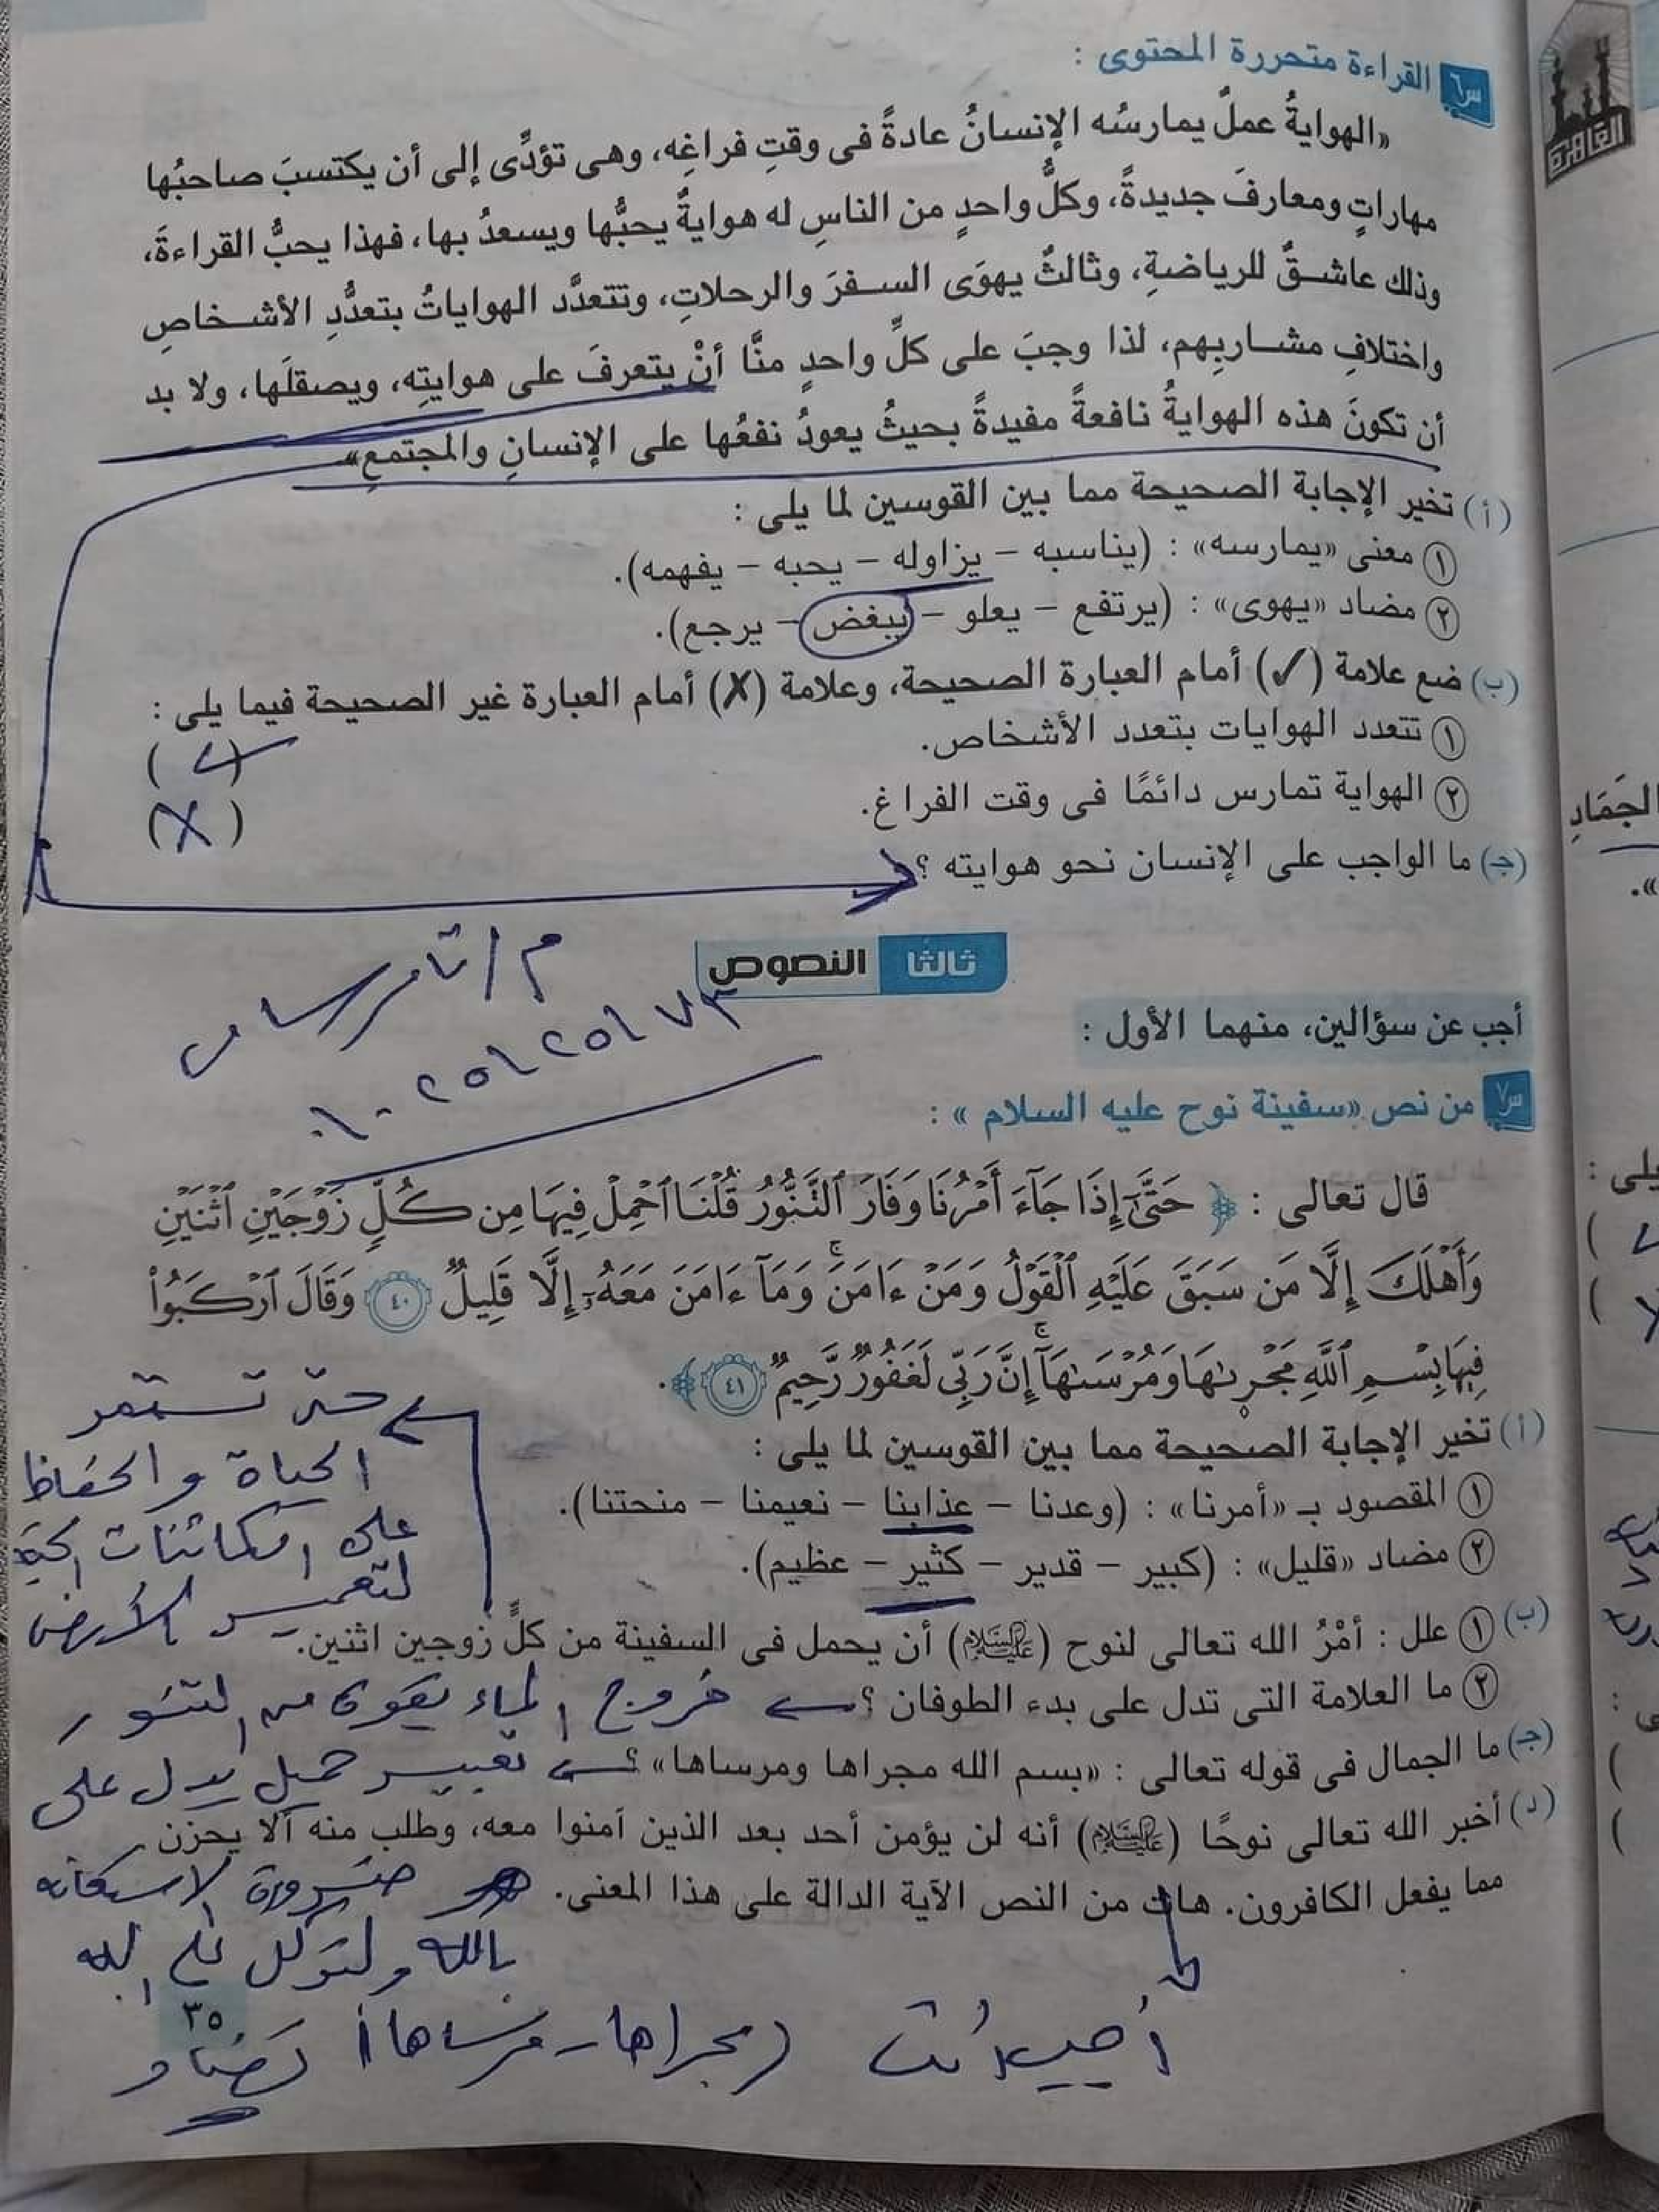 س٦ القراءة متحررة المحتوى :
«الهوايةُ عملٌ يمارسُه الإنسانُ عادةً فى وقتِ فراغِه، وهى تؤدِّى إلى أن يكتسبَ صاحبُها
مهاراتٍ ومعارفَ جديدةً، وكلُّ واحدٍ من الناسِ له هوايةٌ يحبُّها ويسعدُ بها، فهذا يحبُّ القراءةَ،
وذلك عاشقٌ للرياضةِ، وثالثٌ يهوَى السفرَ والرحلاتِ، وتتعدَّد الهواياتُ بتعدُّدِ الأشخاصِ
واختلافِ مشاربِهم، لذا وجبَ على كلِّ واحدٍ منَّا أنْ يتعرفَ على هوايتِه، ويصقلَها، ولا بد
أن تكونَ هذه الهوايةُ نافعةً مفيدةً بحيثُ يعودُ نفعُها على الإنسانِ والمجتمعِ»
(أ) تخير الإجابة الصحيحة مما بين القوسين لما يلى :
١ معنى «يمارسه» : (يناسبه – يزاوله – يحبه – يفهمه).
٢ مضاد «يهوى» : (يرتفع – يعلو – يبغض – يرجع).
(ب) ضع علامة (✓) أمام العبارة الصحيحة، وعلامة (✗) أمام العبارة غير الصحيحة فيما يلى :
١ تتعدد الهوايات بتعدد الأشخاص. (✓)
٢ الهواية تمارس دائمًا فى وقت الفراغ. (X)
(جـ) ما الواجب على الإنسان نحو هوايته ؟
ثالثًا النصوص
أجب عن سؤالين، منهما الأول :
س٧ من نص «سفينة نوح عليه السلام» :
قال تعالى : ﴿ حَتَّىٰٓ إِذَا جَآءَ أَمْرُنَا وَفَارَ ٱلتَّنُّورُ قُلْنَا ٱحْمِلْ فِيهَا مِن كُلٍّ زَوْجَيْنِ ٱثْنَيْنِ
وَأَهْلَكَ إِلَّا مَن سَبَقَ عَلَيْهِ ٱلْقَوْلُ وَمَنْ ءَامَنَ ۚ وَمَآ ءَامَنَ مَعَهُۥٓ إِلَّا قَلِيلٌ ٤٠ وَقَالَ ٱرْكَبُوا۟
فِيهَا بِسْمِ ٱللَّهِ مَجْر۪ىٰهَا وَمُرْسَىٰهَآ ۚ إِنَّ رَبِّى لَغَفُورٌ رَّحِيمٌ ٤١ ﴾.
حتى تستمر
الحياة والحفاظ
على الكائنات الحية
لتعمير الأرض
(أ) تخير الإجابة الصحيحة مما بين القوسين لما يلى :
١ المقصود بـ «أمرنا» : (وعدنا – عذابنا – نعيمنا – منحتنا).
٢ مضاد «قليل» : (كبير – قدير – كثير – عظيم).
(ب) ١ علل : أمْرُ الله تعالى لنوح (عليه السلام) أن يحمل فى السفينة من كلِّ زوجين اثنين.
٢ ما العلامة التى تدل على بدء الطوفان ؟ خروج الماء بقوة من التنور
(جـ) ما الجمال فى قوله تعالى : «بسم الله مجراها ومرساها» ؟ تعبير جميل يدل على
(د) أخبر الله تعالى نوحًا (عليه السلام) أنه لن يؤمن أحد بعد الذين آمنوا معه، وطلب منه ألا يحزن
مما يفعل الكافرون. هات من النص الآية الدالة على هذا المعنى. ضرورة الاستعانة
بالله والتوكل على الله
أجيب أنت (مجراها - مرساها) تضاد
٣٥
القاهرة
الجَمَادِ